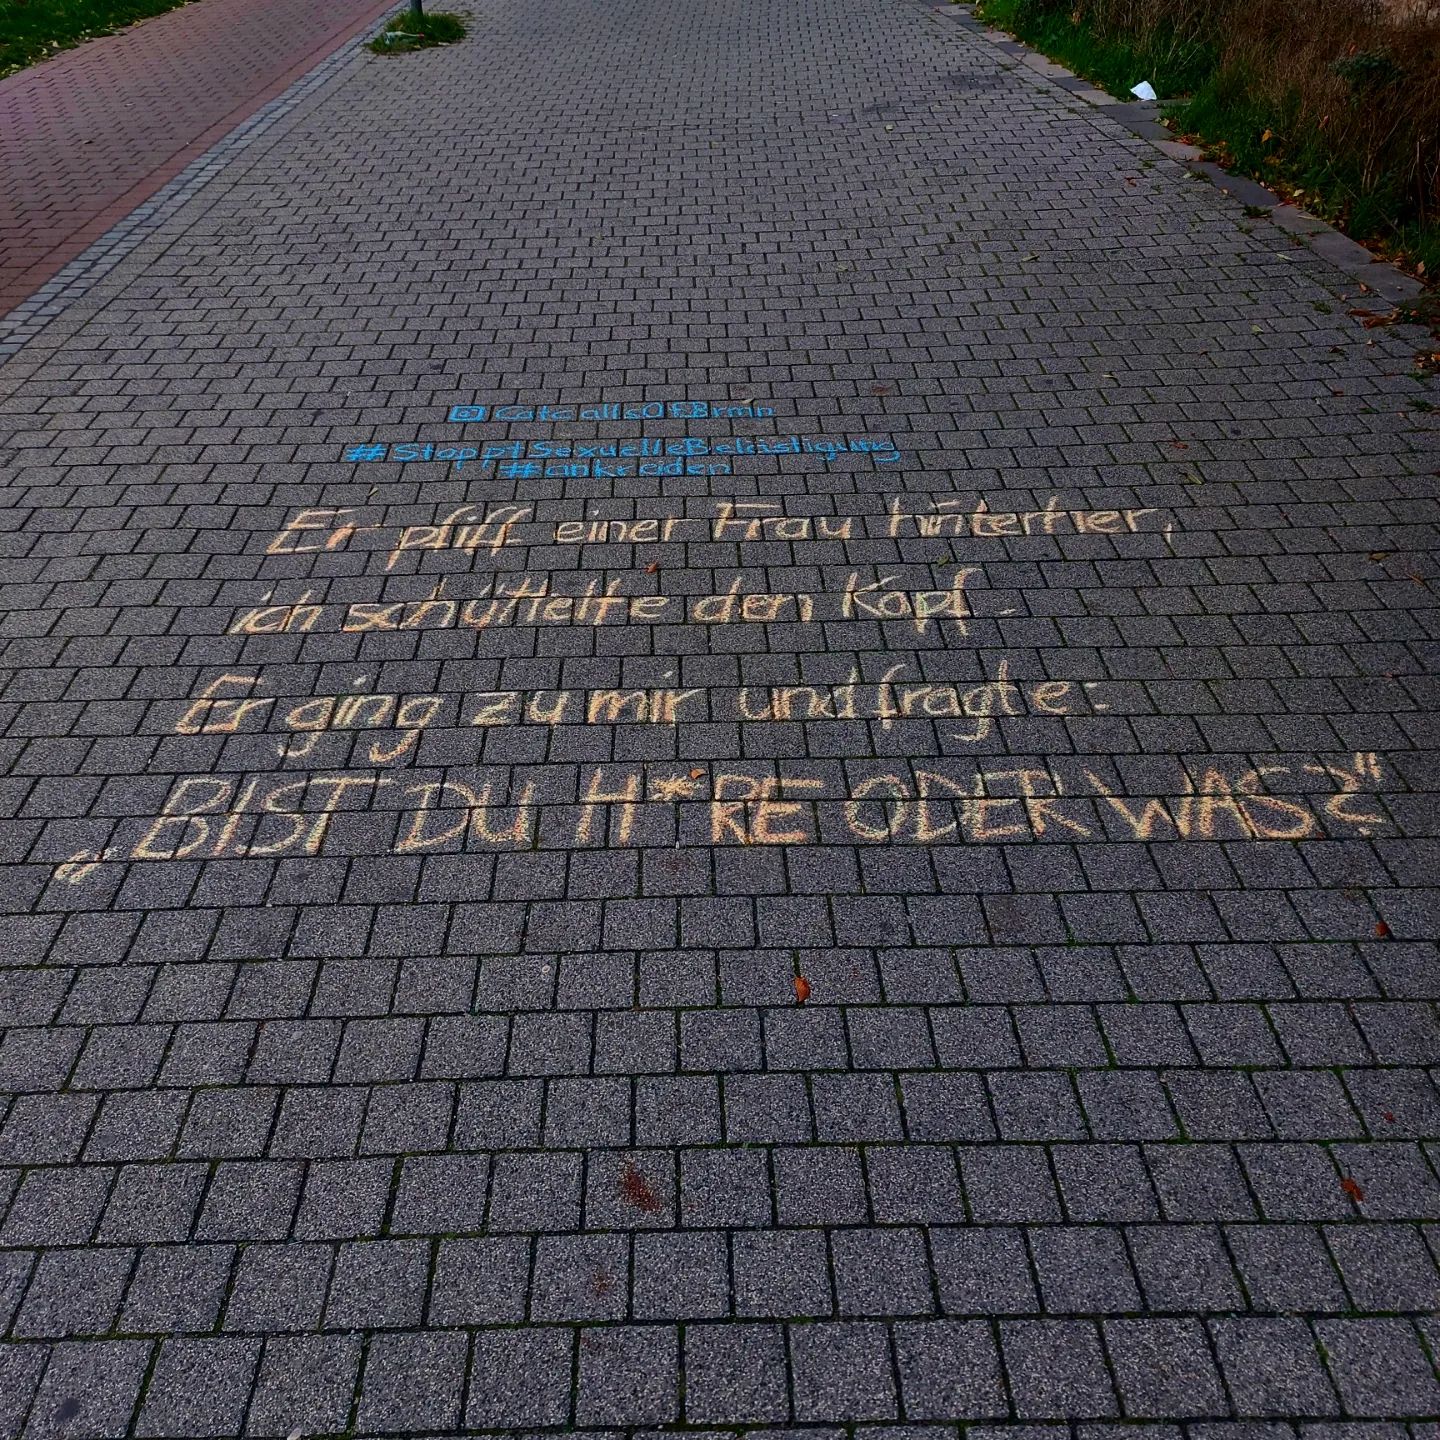 CatcallsOfBrmn
#StopptSexuelleBelästigung
#ankreiden
Er pfiff einer Frau hinterher,
ich schüttelte den Kopf.
Er ging zu mir und fragte:
„BIST DU H*RE ODER WAS?"